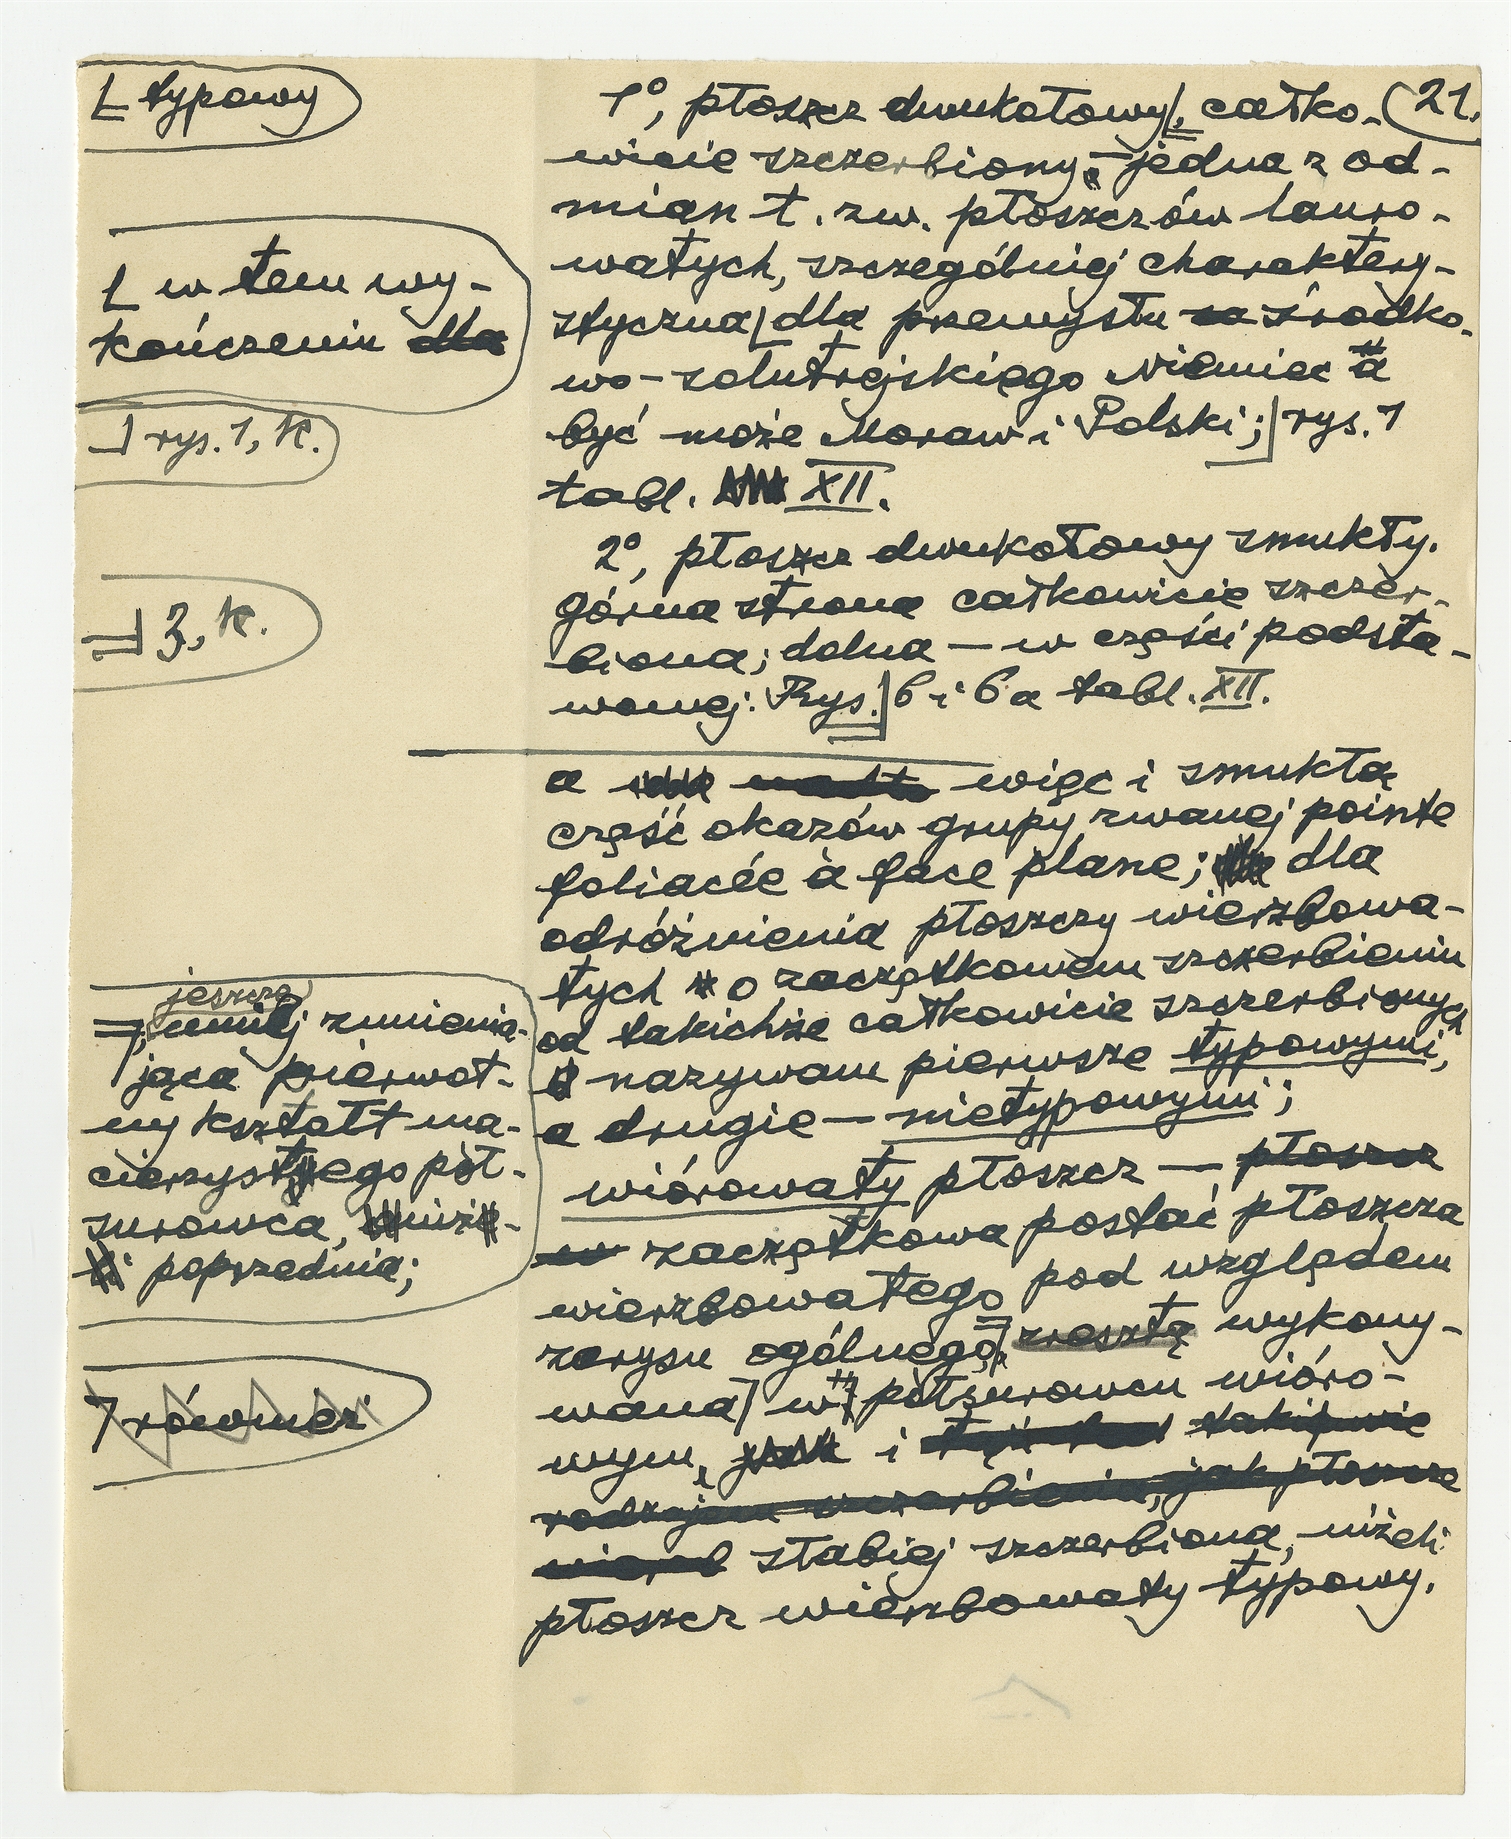 ⌊ typowy
⌊ w tem wy-
kończeniu dla
⌋ rys. 1, K.
⌋ 3, K.
jeszcze
mniej zmienia-
jąca pierwot-
ny kształt ma-
cierzystego pół-
surowca, niż
poprzednia;
7 również
21.
1°, płoszcz dwukołowy, całko-
wicie szczerbiony, – jedna z od-
mian t. zw. płoszczów lauro-
watych, szczególniej charaktery-
styczna ⌊ dla przemysłu środko-
wo-solutrejskiego Niemiec a
być może Moraw i Polski; ⌋ rys. 1
tabl. XII.
2°, płoszcz dwukołowy smukły.
górna strona całkowicie szczer-
biona; dolna – w części podsta-
wowej: Rys. ⌋ 6 i 6a tabl. XII.
a więc i smukłą
część okazów grupy zwanej pointe
foliacée à face plane; dla
odróżnienia płoszczy wierzbowa-
tych o zaczątkowem szczerbieniu
od takichże całkowicie szczerbionych
nazywam pierwsze typowymi,
a drugie – nietypowymi;
wiórowaty płoszcz – płoszcz
w zaczątkowa postać płoszcza
wierzbowatego pod względem
zarysu ogólnego, zresztą wykony-
wana w półsurowcu wióro-
wym, i takiemże
rodzajem szczerbienia, jak płoszcze
słabiej szczerbiona, niżeli
płoszcz wierzbowaty typowy.